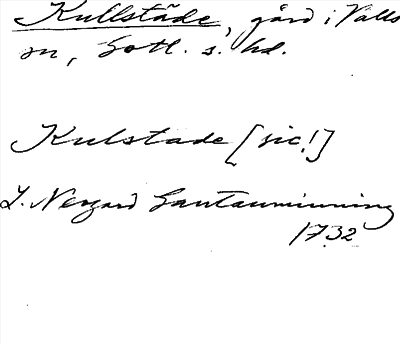 Kullstäde, gård i Valls
sn, Gotl. s. hd.
Kulstade [sic!]
L. Nergard Gautauminning
1732